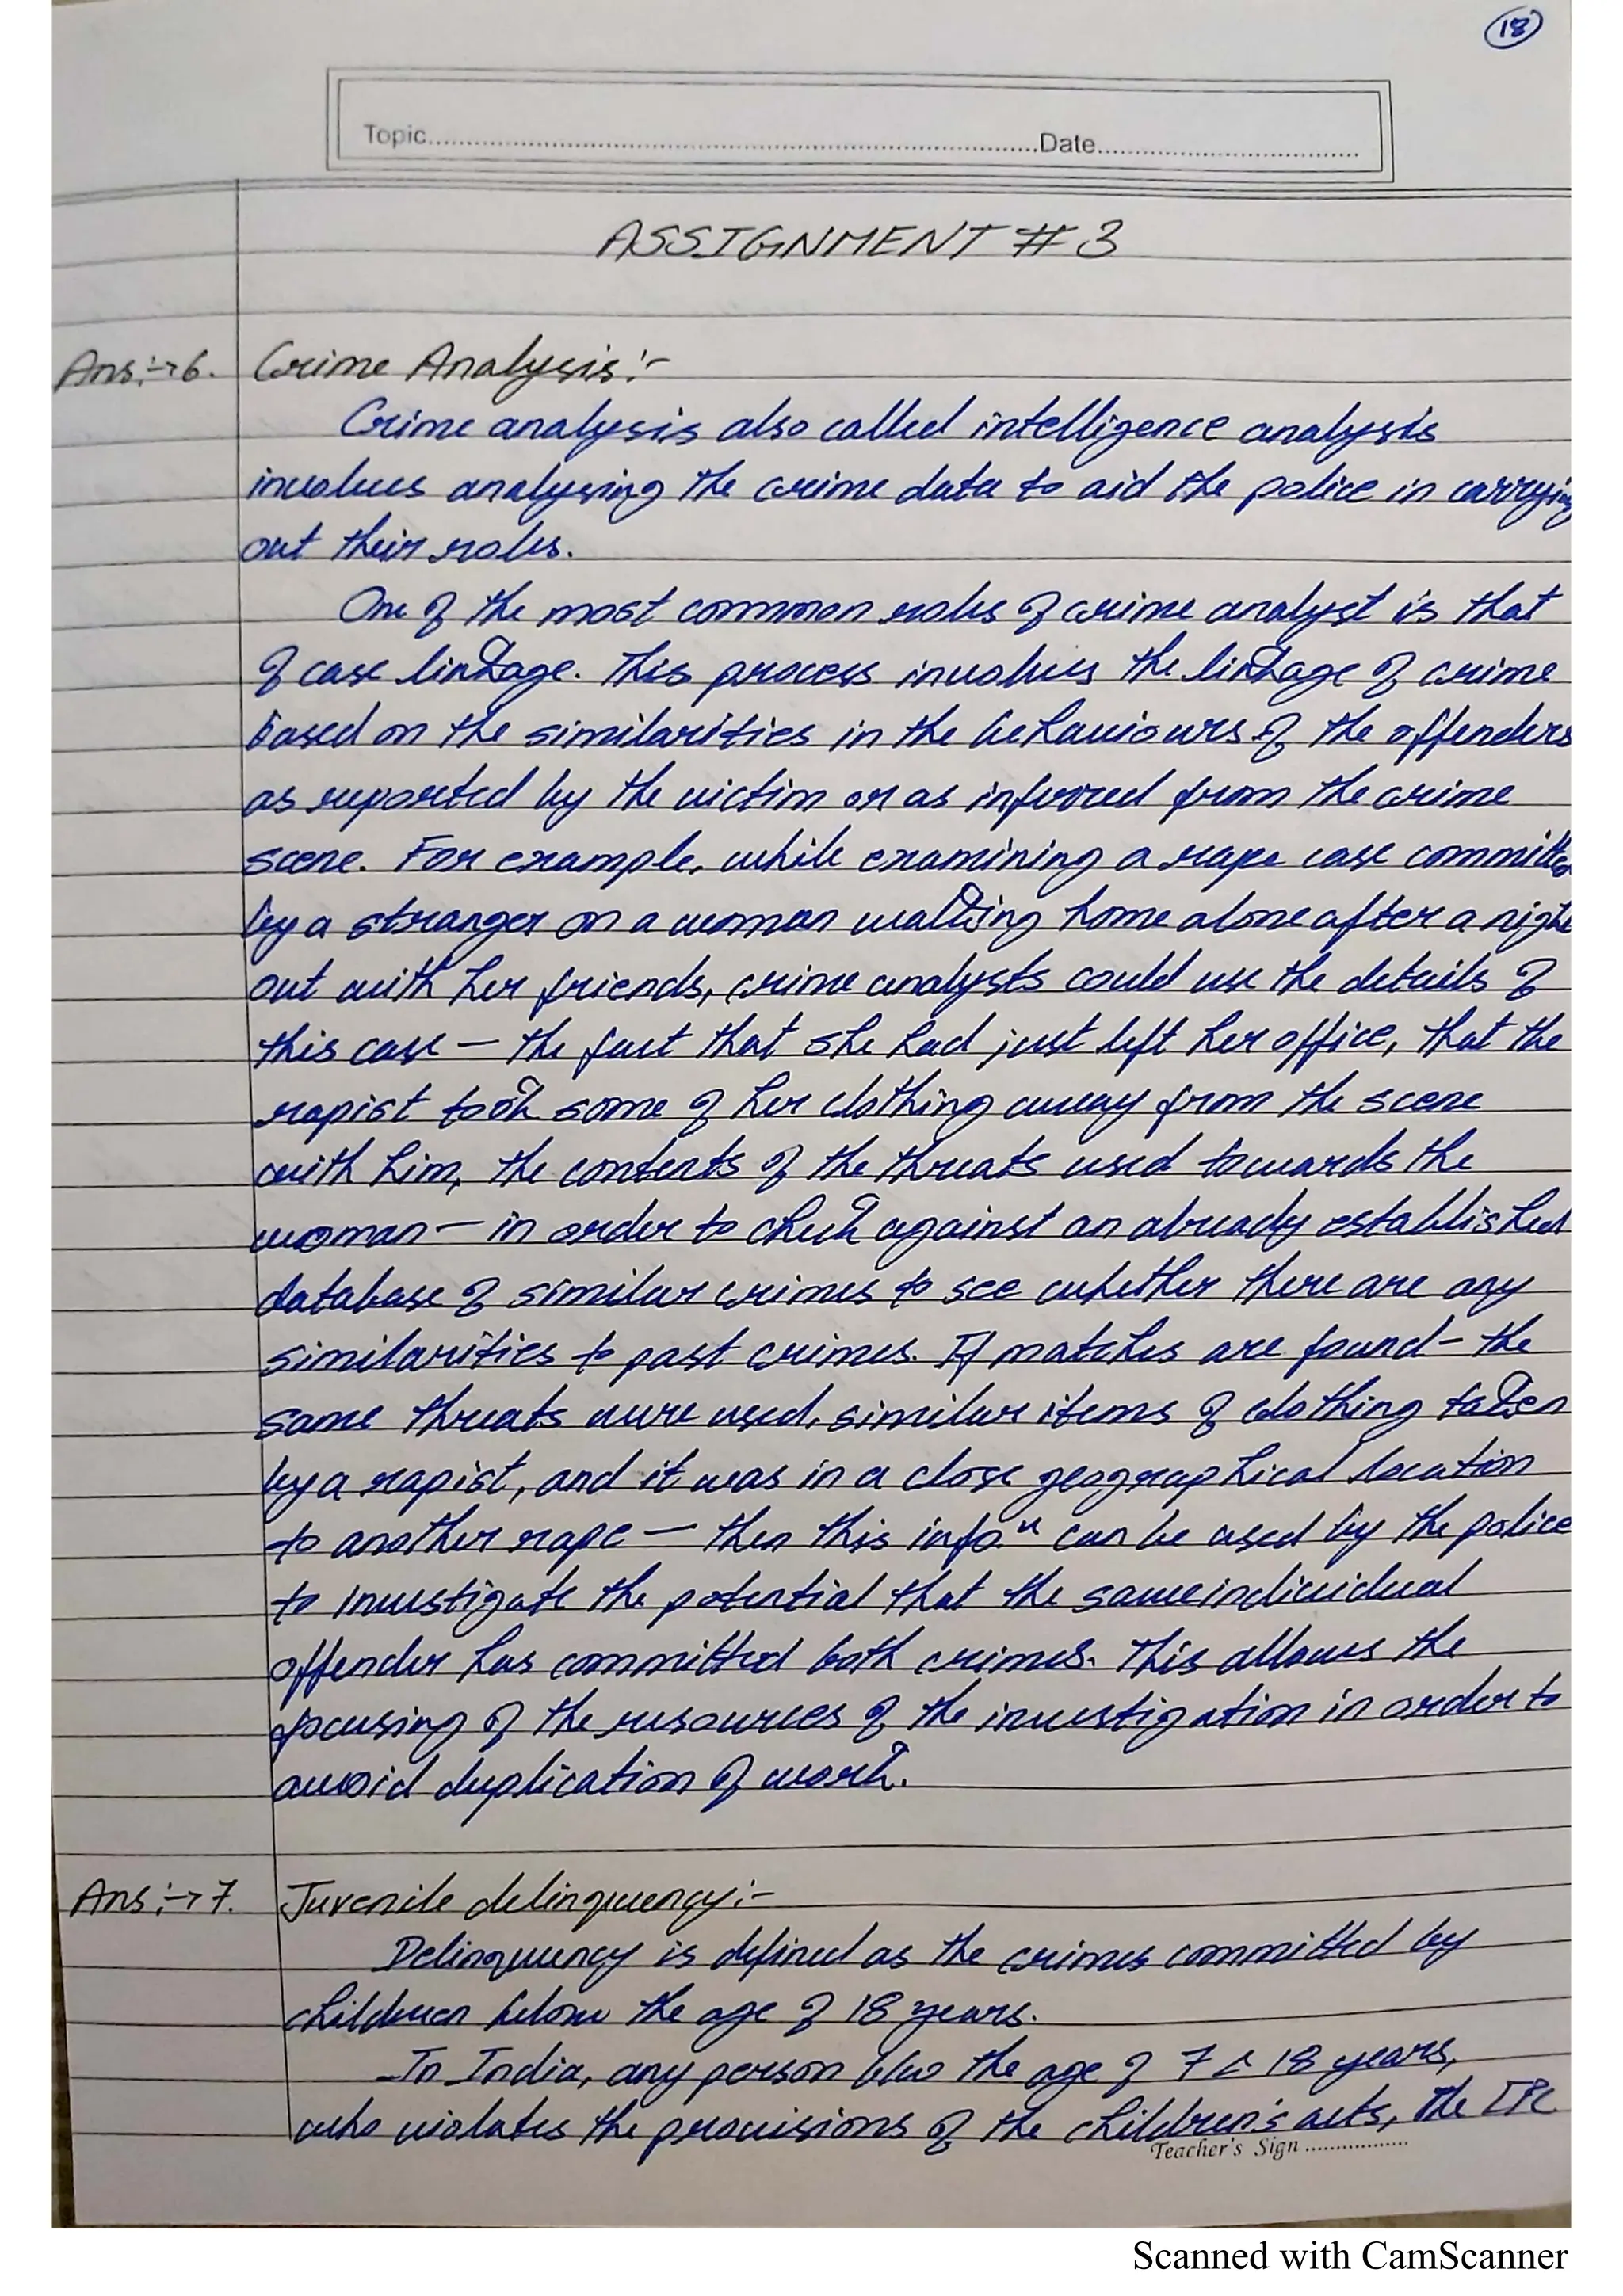 18
Topic Date
ASSIGNMENT # 3
Ans:→6. Crime Analysis:-
Crime analysis also called intelligence analysis
involves analysing the crime data to aid the police in carrying
out their roles.
One of the most common roles of crime analyst is that
of case linkage. This process involves the linkage of crime
based on the similarities in the behaviours of the offenders
as reported by the victim or as inferred from the crime
scene. For example, while examining a rape case committed
by a stranger on a woman walking home alone after a night
out with her friends, crime analysts could use the details of
this case – the fact that she had just left her office, that the
rapist took some of her clothing away from the scene
with him, the contents of the threats used towards the
woman – in order to check against an already established
database of similar crimes to see whether there are any
similarities to past crimes. If matches are found – the
same threats were used, similar items of clothing taken
by a rapist, and it was in a close geographical location
to another rape – then this infoⁿ can be used by the police
to investigate the potential that the same individual
offender has committed both crimes. This allows the
focusing of the resources of the investigation in order to
avoid duplication of work.
Ans:→7. Juvenile delinquency:-
Delinquency is defined as the crimes committed by
children below the age of 18 years.
In India, any person b/w the age of 7 & 18 years,
who violates the provisions of the children's acts, the IPC
Teacher's Sign
Scanned with CamScanner